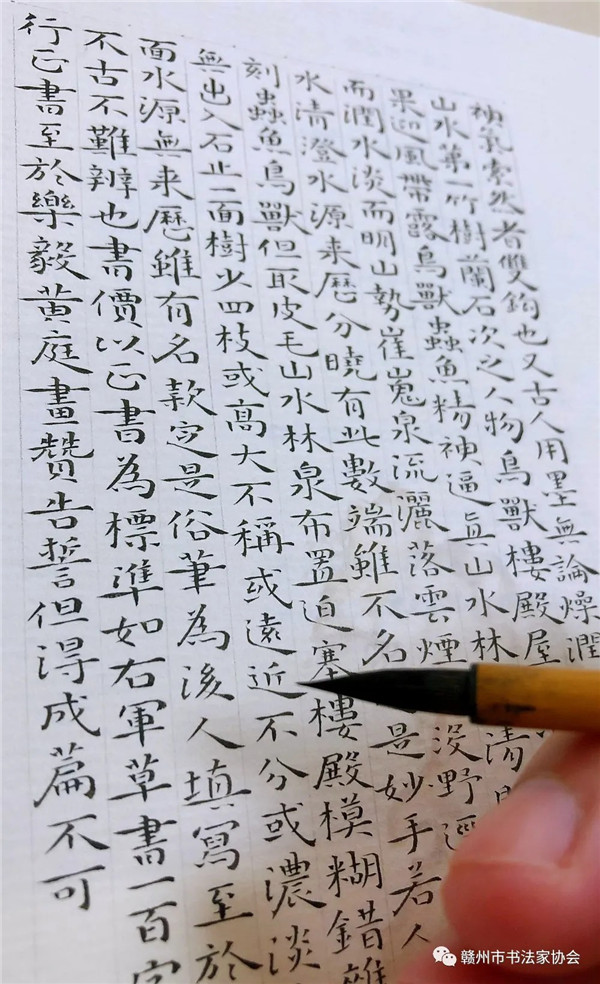 神氣索然者雙鉤也又古人用墨無論燥潤
山水第一竹樹蘭石次之人物鳥獸樓殿屋
果迎風帶露鳥獸蟲魚精神逼真山水林清
而潤水淡而明山勢崔嵬泉流灑落雲煙沒野逕
水清澄水源来歷分曉有此數端雖不名是妙手若人
刻蟲魚鳥獸但取皮毛山水林泉布置迫塞樓殿模糊錯雜
無出入石止一面樹少四枝或高大不稱或遠近不分或濃淡
面水源無来歷雖有名款定是俗筆為後人填寫至於
不古不難辨也書價以正書為標準如右軍草書一百字
行正書至於樂毅黃庭畫贊告誓但得成篇不可
赣州市书法家协会